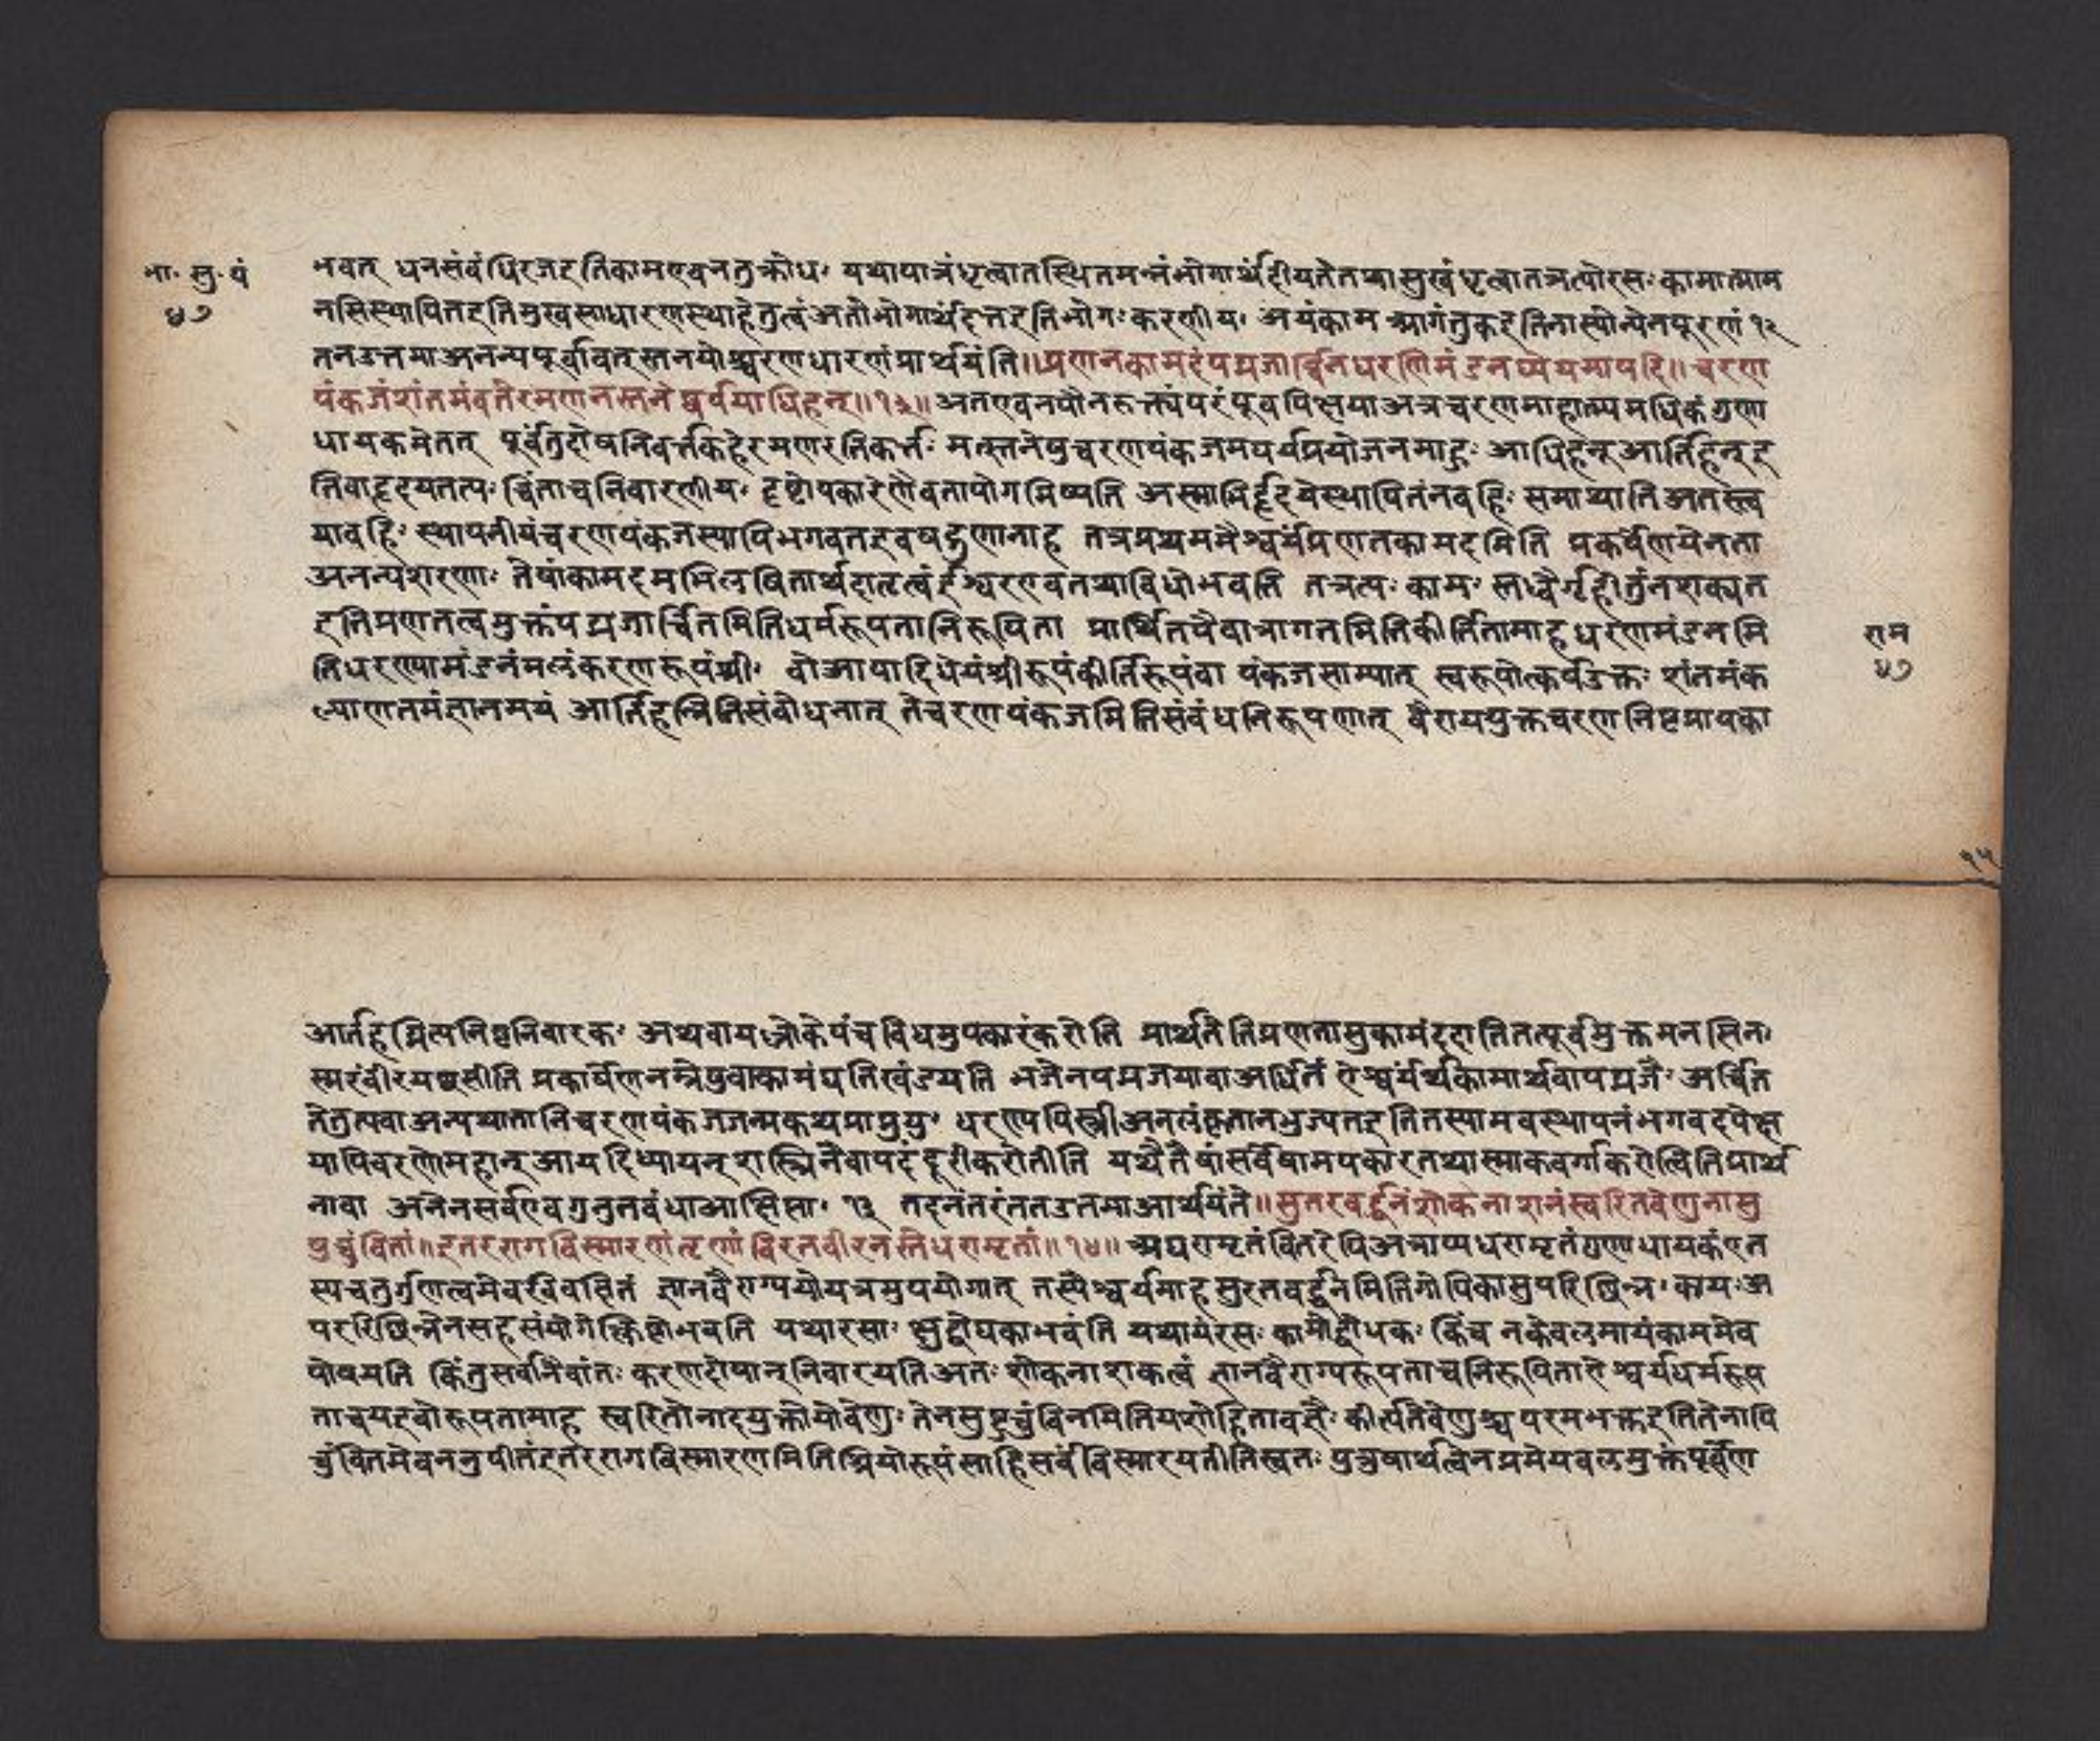 भा. सु. पं
४७
भवत् धनसंबंधिरजइतिकामएवनतुक्रोधः यथापात्रंधृत्वातस्थितमन्नंभोगार्थंदीयतेतथासुखंधृत्वातत्रत्योरसः कामात्माम
नसिस्थापितइतिमुखसाधारणस्थाहेतुत्वंअतोभोगार्थंदत्तइतिभोगः करणीयः अयंकाम आगंतुकइतिनास्योन्येनपूरणं १२
तनउत्तमाअनन्यपूर्वावत् स्तनयोश्चरणधारणंप्रार्थयंति॥प्रणनकामदंपद्मजार्च्चिनधरणिमंडनध्येयमापदि॥ चरण
पंकजंशंतमंचतेरमणनस्तनेष्वर्पयाधिहन्॥१३॥ अतएवनपौनरुक्त्यंपरंपूर्वापेक्षयाअत्रचरणमाहात्म्यमधिकंगुणा
धायकमेतत् पूर्वंतुदोषनिवर्त्तकंहेरमणरतिकर्त्तः मत्स्तनेषुचरणपंकजमर्पयप्रयोजनमाह आधिहन् आर्तिहन् इ
तिवाहृदयतत्पः चिंताचनिवारणीयः दृष्टोपकारेणैवतापोगमिष्यति अस्माभिर्हृदयेस्थापितंनबहिः समायाति अतस्त्व
याबहिः स्थापनीयंचरणपंकजस्यापिभगवतइवषड्गुणानाह तत्रप्रथममैश्वर्यंप्रणतकामदमिति प्रकर्षेणयेनता
अनन्यशरणाः तेषांकामदमभिलषितार्थदातृत्वंईश्वरएवतथाविधोभवति तत्रत्यः कामः स्तब्धैर्गृहीतुंनशक्यत
इतिप्रणतत्वमुक्तंपद्मजार्चितमितिधर्मरूपतानिरूपिता प्रार्थितएवात्रागतमितिकीर्तितामाह धरणिमंडनमि
तिधरण्यामंडनंमलंकरणरूपंश्रीः वोआपादिधेयंश्रीरूपंकीर्तिरूपंवा पंकजसाम्यात् स्वरूपोत्कर्षउक्तः शंतमंक
ल्याणतमंज्ञानमयं आर्तिहन्नितिसंबोधनात् तेचरणपंकजमितिसंबंधनिरूपणात् वैराग्ययुक्तचरणनिष्टप्रापका
राम
४७
१५
आर्तहन्नित्यनिष्ठनिवारकः अथवायश्लोकेपंचविधमुपकारंकरोति प्रार्थनेतिप्रणतासुकामंददातितत्पूर्वमुक्तमनसिनः
स्मरंवीरयछसीति प्रकर्षेणनम्रेषुवाकामंद्यतिखंडयति भजेनपद्मजयावाअर्चितं ऐश्वर्यर्थकामार्थंवापद्मजैः अर्चित
तेतुत्पवाअन्यथातानिचरणपंकजजन्मकथंप्राप्नुयुः धरण्यपिस्त्रीअनलंकृतानभुज्यतइतितस्यामवस्थापनंभगवदपेक्ष
यापिचरणोमहान् आपदिध्यायन् शास्त्रिनैवापदंदूरीकरोतीति यथैतेषांसर्वेषामपकारतथास्माकवर्गाकरोत्वितिप्रार्थ
नावा अनेनसर्वएवगुनुतबंधाआक्षिप्ताः १३ तदनंतरंततउत्तमाआर्थयंते॥सुतरवर्द्धनंशोकनाशनंस्वरितवेणुनासु
षुचुंबितां॥इतररागविस्मारणंनृणां वितरवीरनस्तेधरामृतां॥१४॥ अधरामृतंवितरेपिअत्राप्यधरामृतंगुणाधायकंएत
स्यचतुर्गुणत्वमेवरविवक्षितं ज्ञानवैराग्ययोरत्रमुपयोगात् तस्यैश्वर्यमाह सुरतवर्द्धनमितिगोपिकासुपरिछिन्नः कायः अ
परिछिन्नेनसहसंयोगेक्लिष्टोभवति यथारसाः क्षुद्बोधकाभवंति यथायंरसः कामोद्बोधकः किंच नकेवलमायंकाममेव
पोषयति किंतुसर्वानेवांतः करणदोषान् निवारयतिअतः शोकनाशकत्वं ज्ञानवैराग्यरूपताचनिरूपिताऐश्वर्यधर्मरूप
ताचयइवोरूपतामाह स्वरितोनादयुक्तोयोवेणुः तेनसुष्टुचुंबिनमितियशोहितावज्ञैः कीर्त्यतेवेणुश्चपरमभक्तइतितेनापि
चुंबितमेवननुपीतंइतररागविस्मारणमितिश्रियोरूपंसाहिसर्वंविस्मारयतीतिस्वतः पुरुषार्थत्वेनप्रमेयबलमुक्तंपूर्वेण